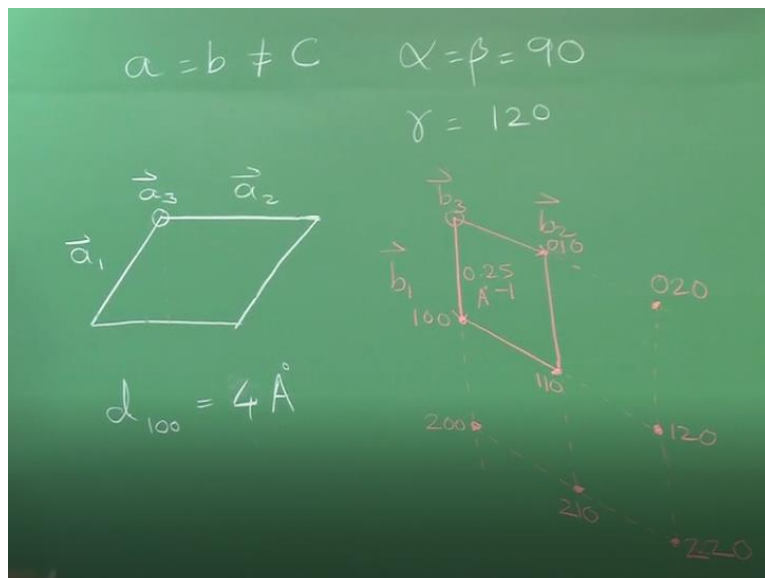 a = b ≠ C
α = β = 90
γ = 120
a⃗₃
a⃗₂
a⃗₁
d₁₀₀ = 4 Å
b⃗₃
b⃗₂
010
b⃗₁
0.25
Å⁻¹
100
020
110
200
120
210
220